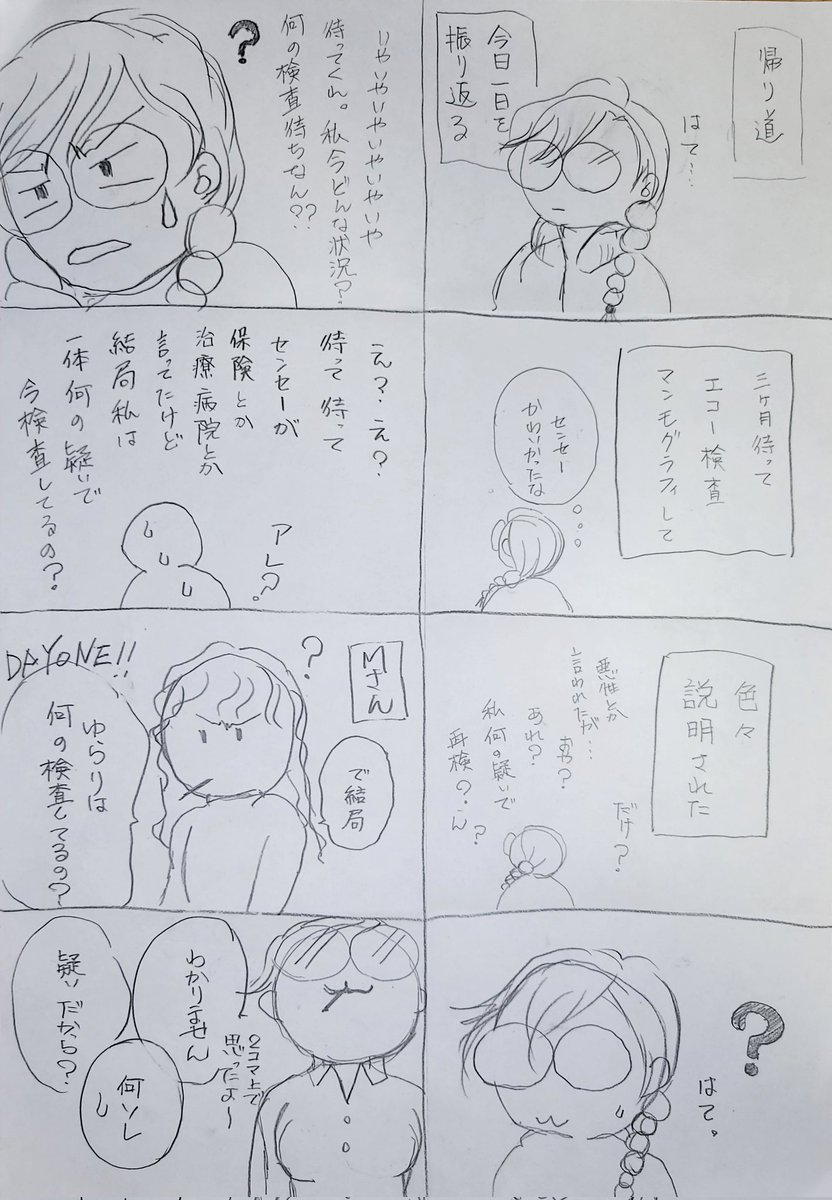 帰り道
はて…
今日一日を
振り返る
三ヶ月待って
エコー検査
マンモグラフィして
センセー
かわいかったな
色々
説明された
だけ？
悪性とか
言われたが…
あれ？
私何の疑いで
再検？ん？
？
はて。
いやいやいやいやいや
待ってくれ。私今どんな状況？
何の検査待ちなん？？
？
え？え？
待って待って
センセーが
保険とか
治療病院とか
言ってたけど
結局私は
一体何の疑いで
今検査してるの？
アレ？
Mさん
？
で結局
DAYONE!!
ゆらりは
何の検査してるの？
2コマ上で
思ったよ～
わかりません
何ソレ
疑いだから？